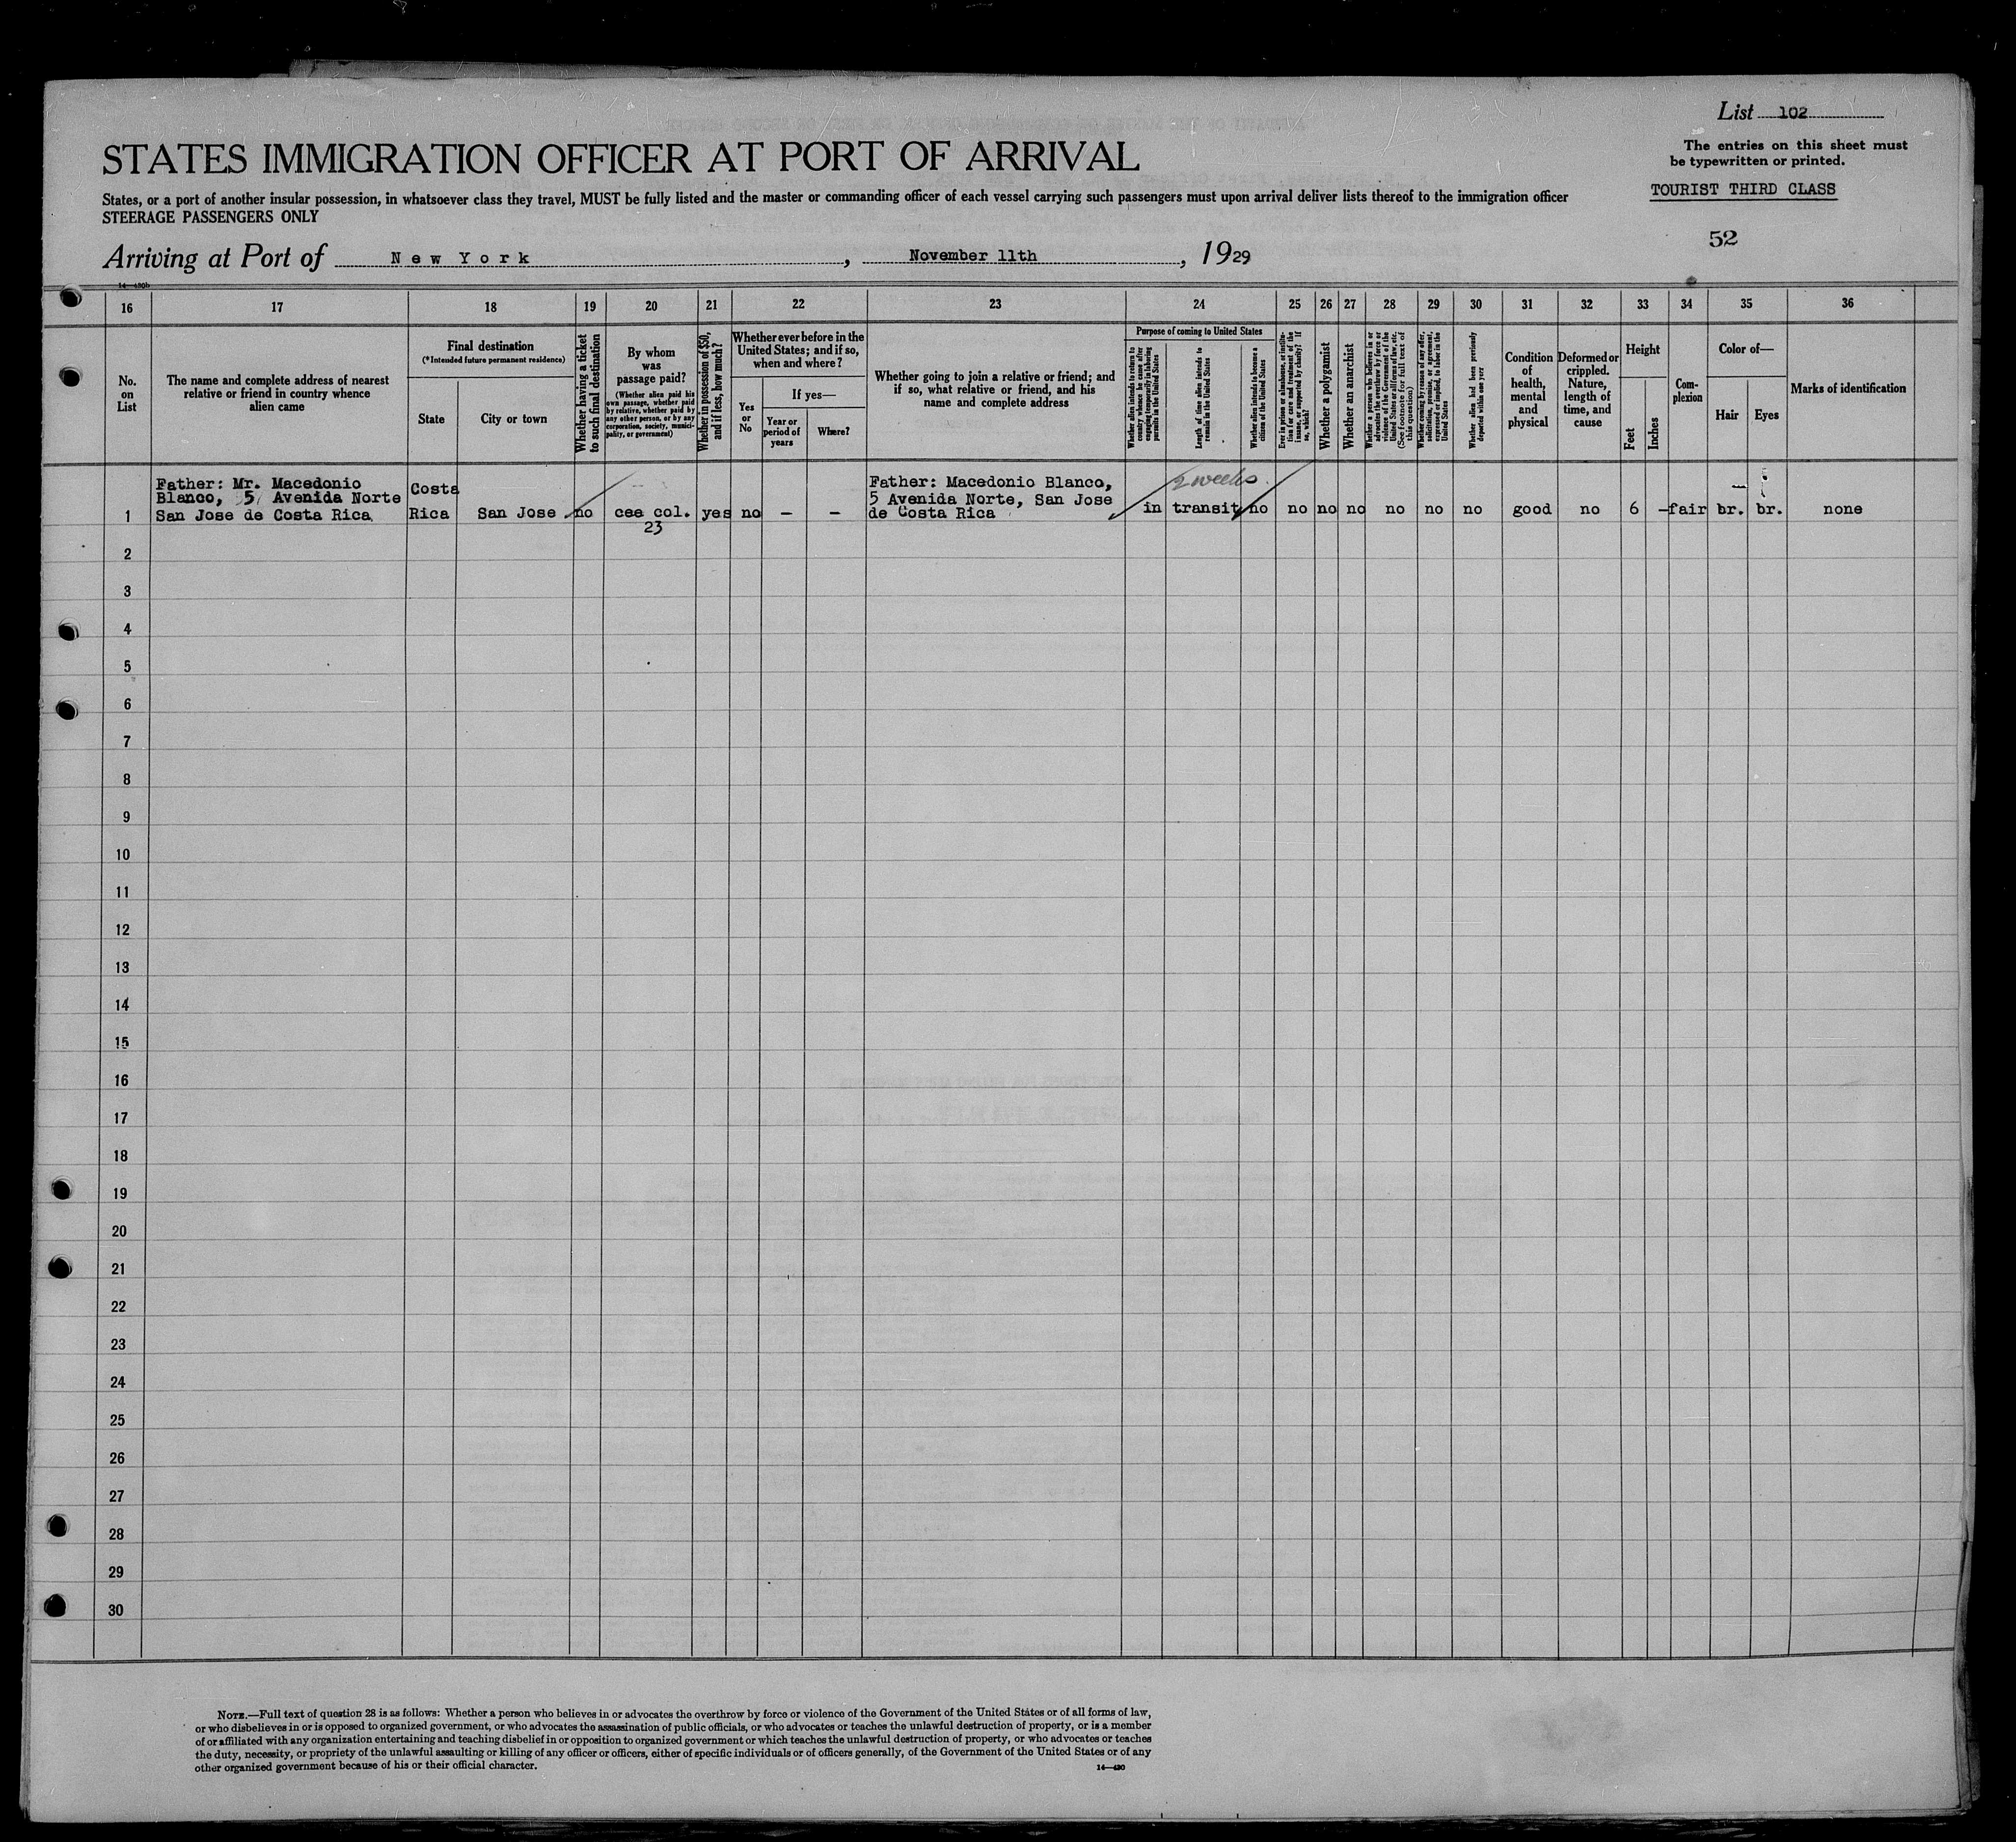 List 102
The entries on this sheet must
be typewritten or printed.
TOURIST THIRD CLASS
52
STATES IMMIGRATION OFFICER AT PORT OF ARRIVAL
States, or a port of another insular possession, in whatsoever class they travel, MUST be fully listed and the master or commanding officer of each vessel carrying such passengers must upon arrival deliver lists thereof to the immigration officer
STEERAGE PASSENGERS ONLY
Arriving at Port of New York, November 11th, 1929
14—430b
16 17 18 19 20 21 22 23 24 25 26 27 28 29 30 31 32 33 34 35 36
No.
on
List
The name and complete address of nearest
relative or friend in country whence
alien came
Final destination
(*Intended future permanent residence)
State
City or town
Whether having a ticket
to such final destination
By whom
was
passage paid?
(Whether alien paid his
own passage, whether paid
by relative, whether paid by
any other person, or by any
corporation, society, munici-
pality, or government)
Whether in possession of $50,
and if less, how much?
Whether ever before in the
United States; and if so,
when and where?
Yes
or
No
If yes—
Year or
period of
years
Where?
Whether going to join a relative or friend; and
if so, what relative or friend, and his
name and complete address
Purpose of coming to United States
Whether alien intends to return to
country whence he came after
engaging temporarily in laboring
pursuits in the United States
Length of time alien intends to
remain in the United States
Whether alien intends to become a
citizen of the United States
Ever in prison or almshouse, or institu-
tion for care and treatment of the
insane, or supported by charity? If
so, which?
Whether a polygamist
Whether an anarchist
Whether a person who believes in or
advocates the overthrow by force or
violence of the Government of the
United States or all forms of law, etc.
(See footnote for full text of
this question)
Whether coming by reason of any offer,
solicitation, promise, or agreement,
expressed or implied, to labor in the
United States
Whether alien had been previously
deported within one year
Condition
of
health,
mental
and
physical
Deformed or
crippled.
Nature,
length of
time, and
cause
Height
Feet
Inches
Com-
plexion
Color of—
Hair
Eyes
Marks of identification
1
Father: Mr. Macedonio
Blanco, 5 Avenida Norte
San Jose de Costa Rica
Costa
Rica
San Jose
no
cee col.
23
yes
no
—
—
Father: Macedonio Blanco,
5 Avenida Norte, San Jose
de Costa Rica
2 weeks
in transit no
no no no no no no good no 6 — fair br. br. none
2
3
4
5
6
7
8
9
10
11
12
13
14
15
16
17
18
19
20
21
22
23
24
25
26
27
28
29
30
NOTE.—Full text of question 28 is as follows: Whether a person who believes in or advocates the overthrow by force or violence of the Government of the United States or of all forms of law,
or who disbelieves in or is opposed to organized government, or who advocates the assassination of public officials, or who advocates or teaches the unlawful destruction of property, or is a member
of or affiliated with any organization entertaining and teaching disbelief in or opposition to organized government or which teaches the unlawful destruction of property, or who advocates or teaches
the duty, necessity, or propriety of the unlawful assaulting or killing of any officer or officers, either of specific individuals or of officers generally, of the Government of the United States or of any
other organized government because of his or their official character.
14—430